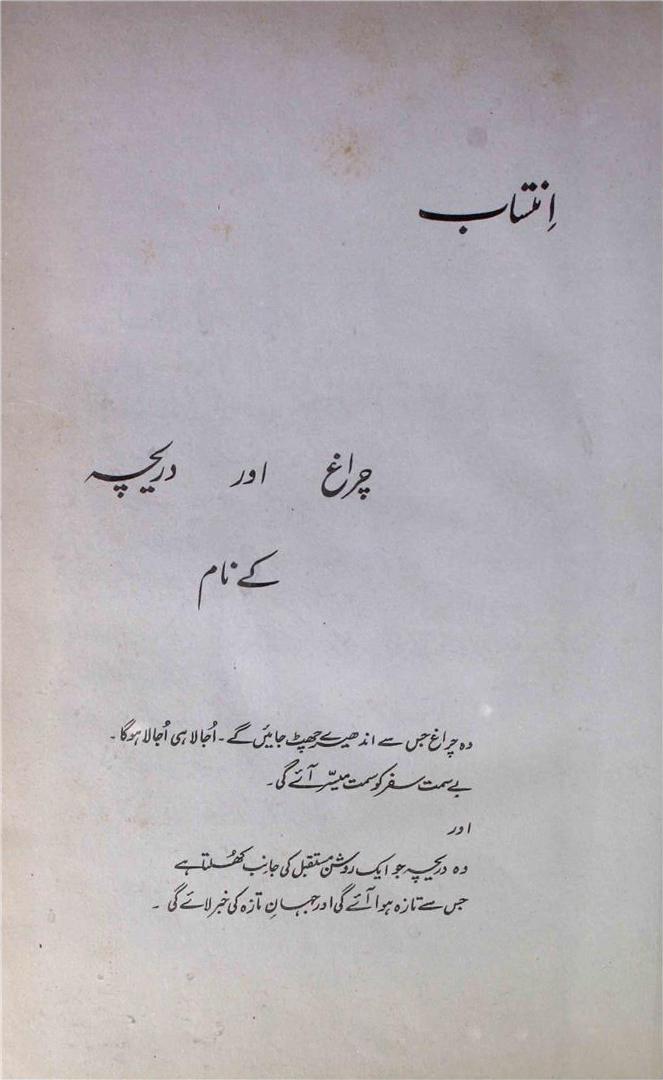 اِنتساب
چراغ اور دریچہ
کے نام
وہ چراغ جس سے اندھیرے چھٹ جائیں گے۔ اُجالا ہی اُجالا ہوگا۔
بے سمت سفر کو سمت میسّر آئے گی۔
اور
وہ دریچہ جو ایک روشن مستقبل کی جانب کھُلتا ہے
جس سے تازہ ہوا آئے گی اور جہانِ تازہ کی خبر لائے گی۔